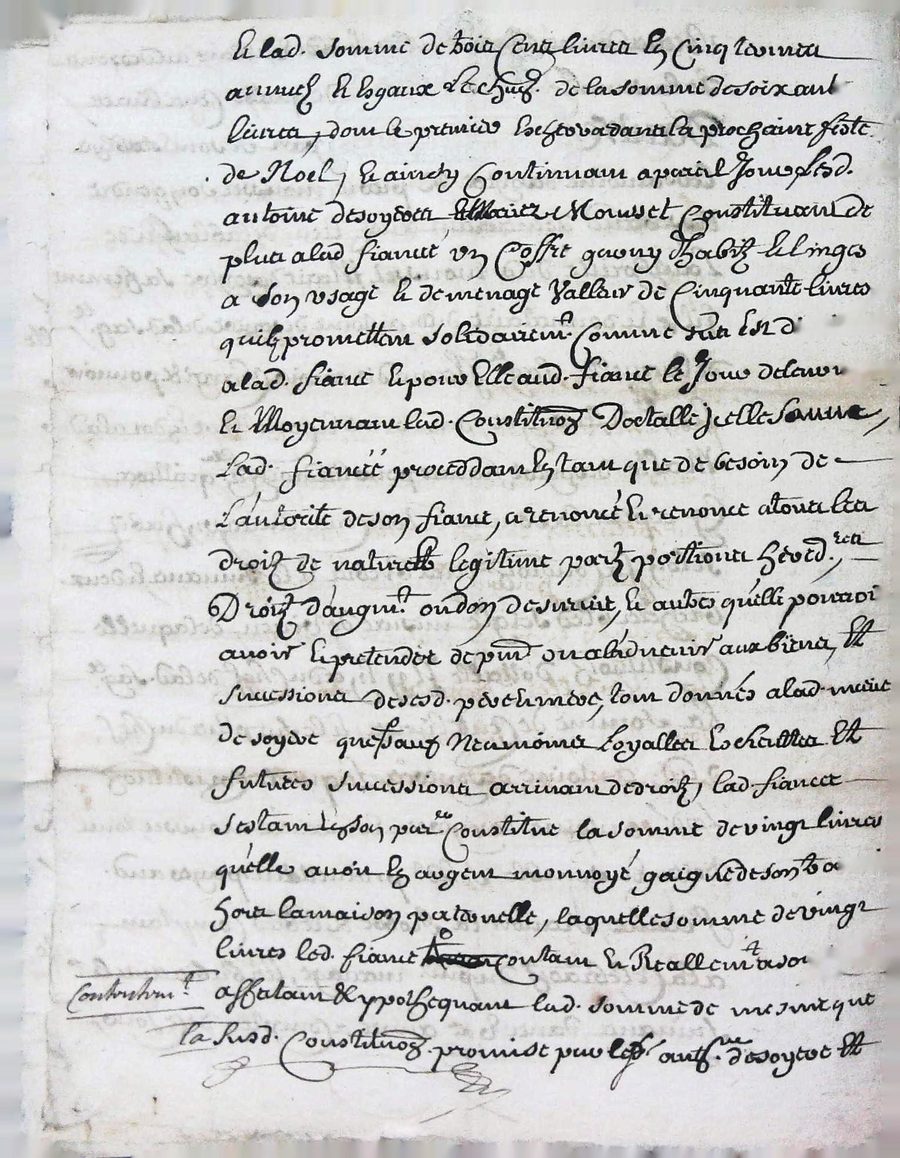 Et lad. somme de trois Cens livres En Cinq termes
annuels Et Esgaux Et Chun. de la somme de soixant
livres, dont le premier Eschevra dans la prochaine feste
de Noel, Et ainsy Continuant a pareil Jour Lesd.
antoine desoyeres Mousset Constituant de
plus a lad. fiancé un Coffre garny d'habitz Et linges
a son usage Et de menage Valleur de Cinquante livres
quilz promettent solidairemt. Comme Est d
a lad. fiance Et pour Elle aud. fiancé le Jour de
Et Moyennant lad. Constituon Doctalle Jcelle
Lad. fiancéé proceddant En tant que de besoin de
L'autorite de son fiance, a renoncé Et renonce a tous les
droitz de nature legitime partz portions hered.res
Droitz d'augmt. ou don de survie, Et autres quelle pourroi
avoir Et pretendre de pnt ou a l'advenir aux biens, Et
successions de sesd. pere Et mere, dont donnés a lad. mere
de soyere quess aus Neanmoins Loyalles Escheuttes Et
futures successions arrivant de droit, lad. fiancee
sestant En son per.er Constitue la somme de vingt livres
quelle avoit En argent monnoyé gaigné de son tra
hors la maison paternelle, laquelle somme de vingt
livres led. fiance contant Et Reallemt. a soi
Contentemt. assetant & yppothequant lad. somme de mesme que
la susd. Constituon. promise par les. de soyere Et